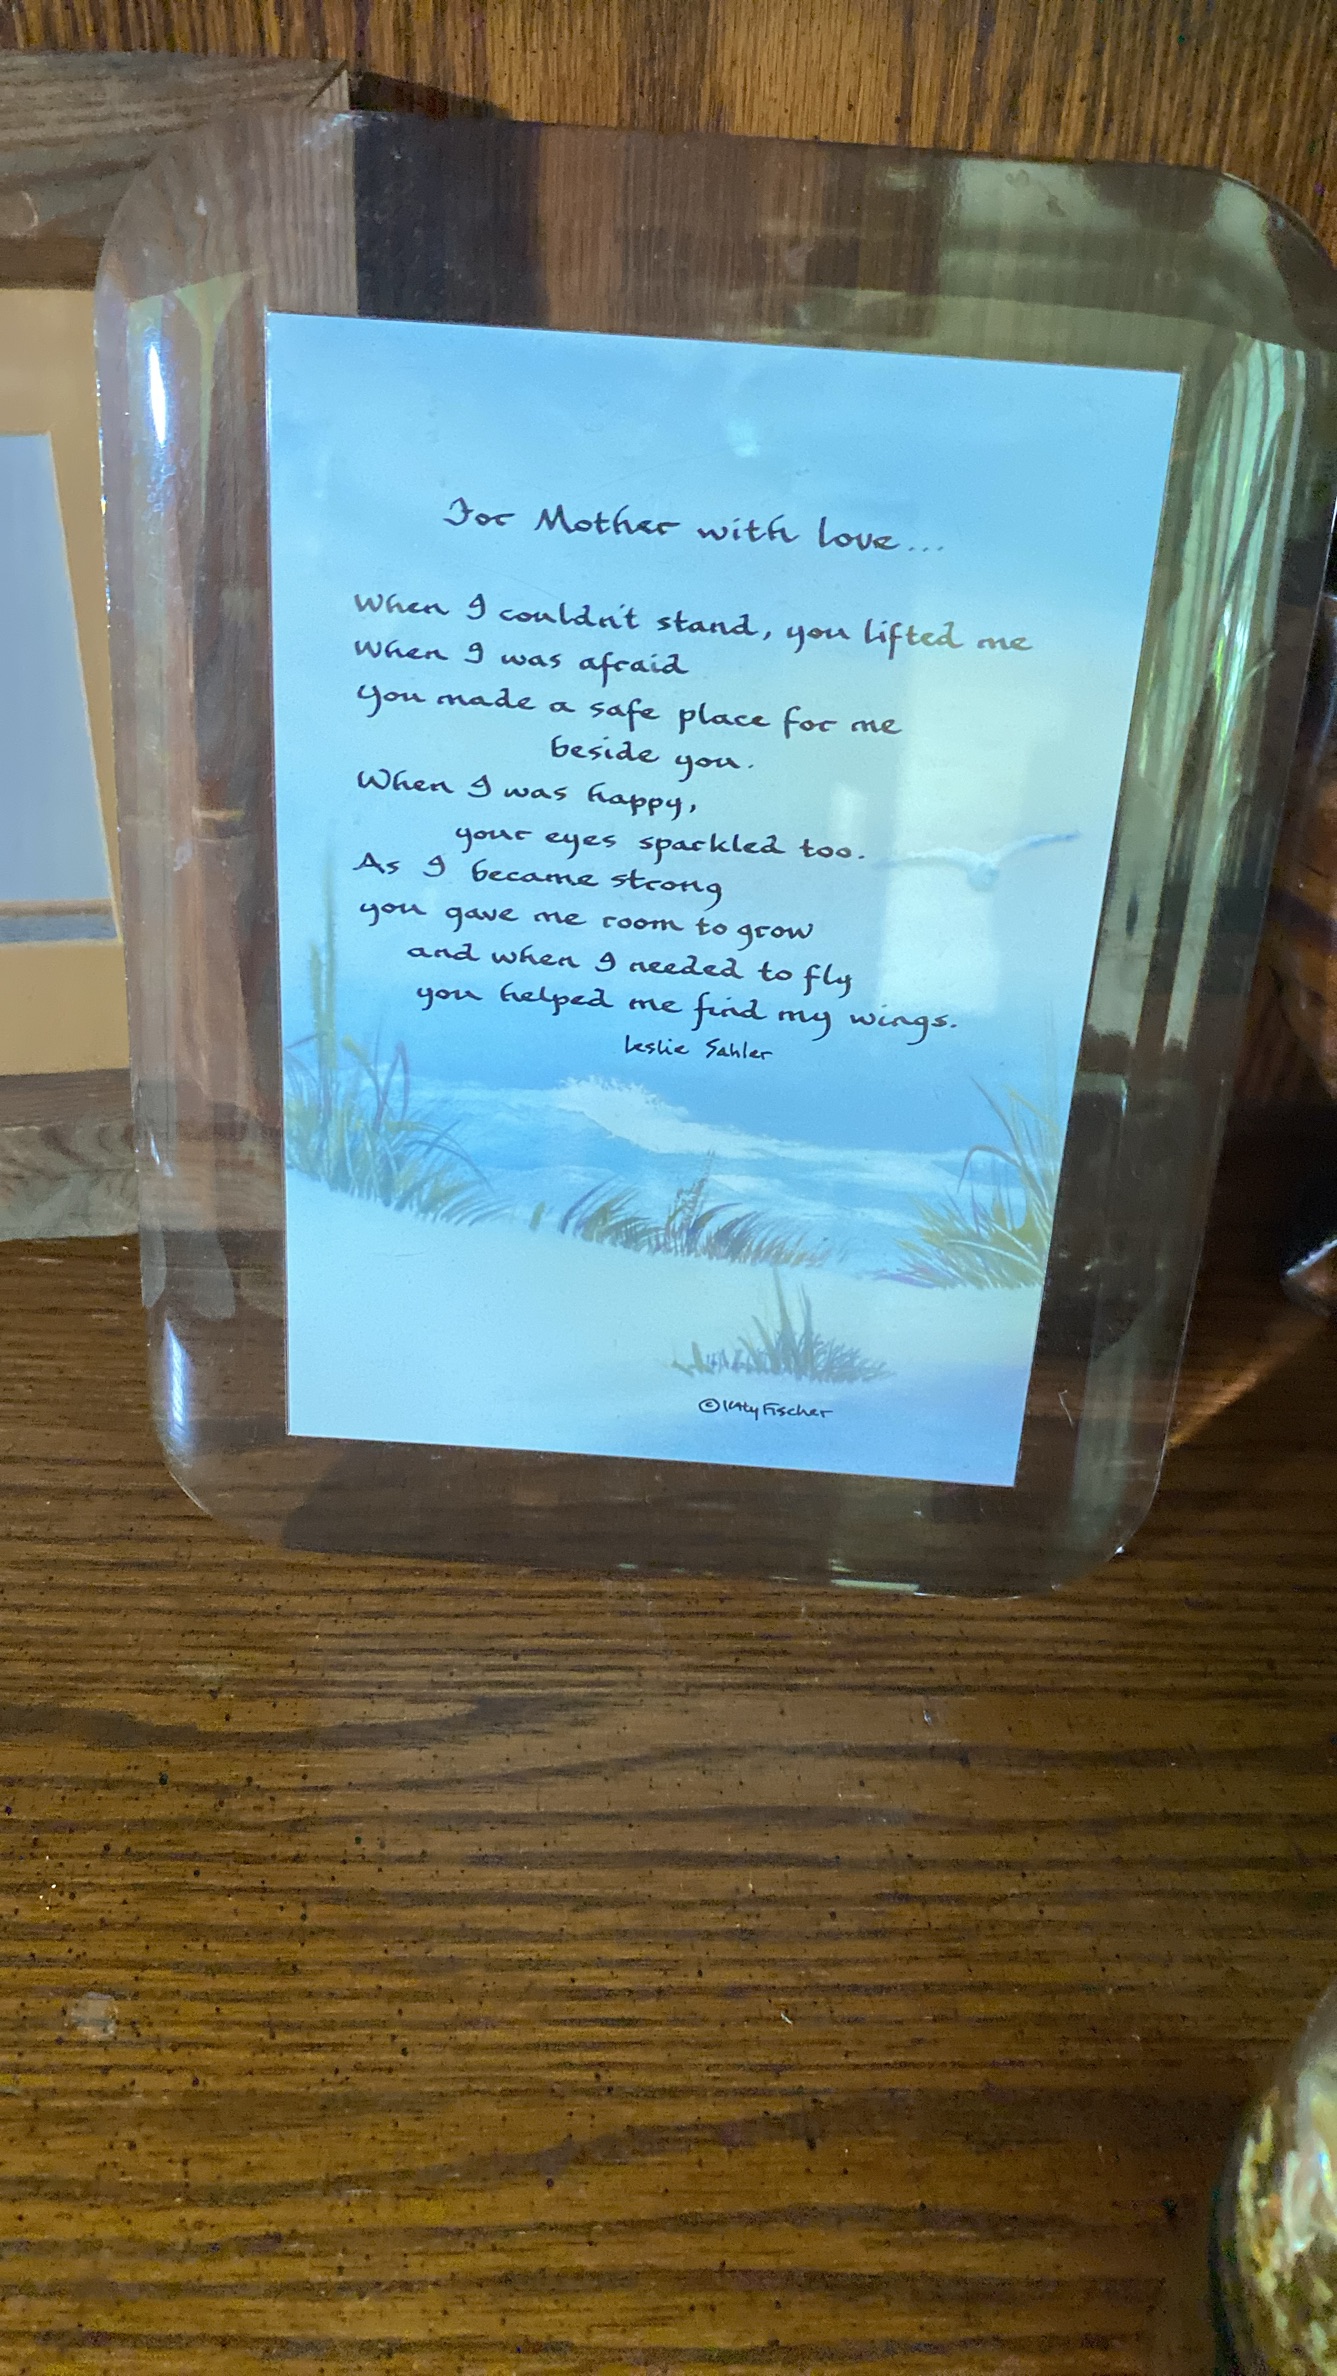 For Mother with love...
When I couldn't stand, you lifted me
When I was afraid
you made a safe place for me
beside you.
When I was happy,
your eyes sparkled too.
As I became strong
you gave me room to grow
and when I needed to fly
you helped me find my wings.
Leslie Sahler
© Katy Fischer